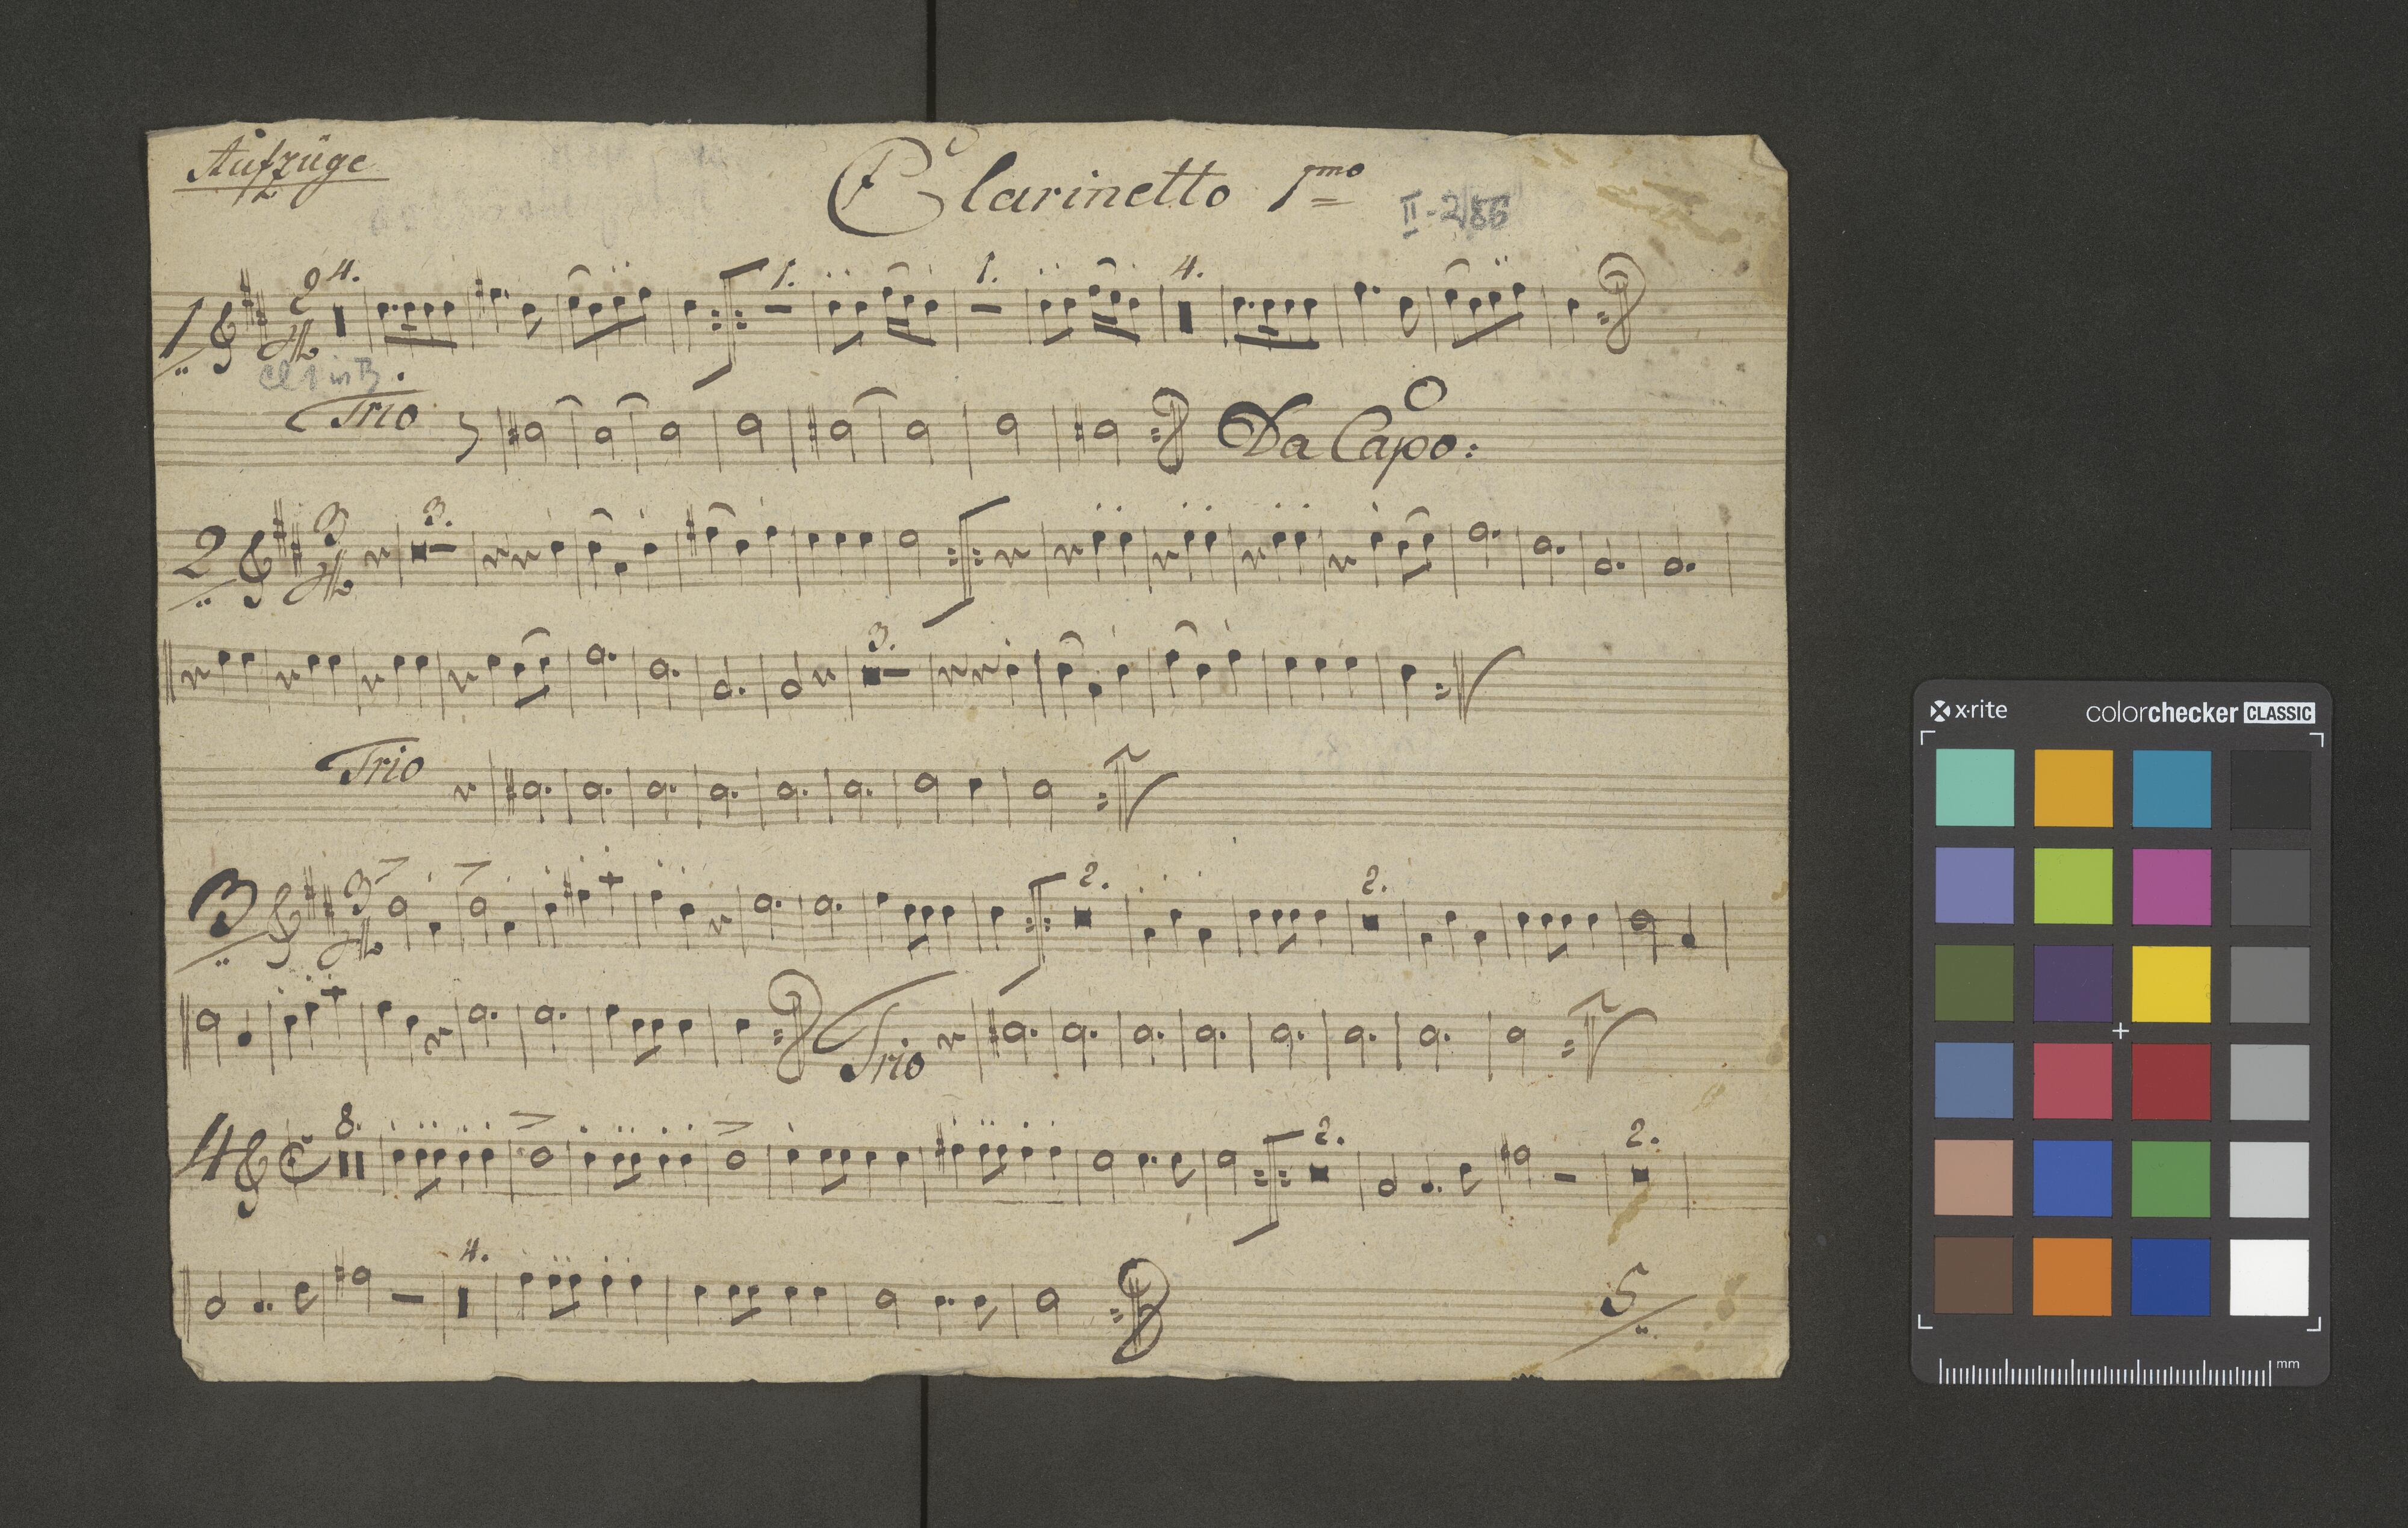 Aufzüge
Clarinetto 1mo
II-2/86
1 2 4. 1. 1. 4.
Cl 1 in B
Trio Da Capo:
2 3 3.
3.
Trio
3 3 2. 2.
Trio
4 8. 2. 2.
4. 5
x-rite colorchecker CLASSIC
mm